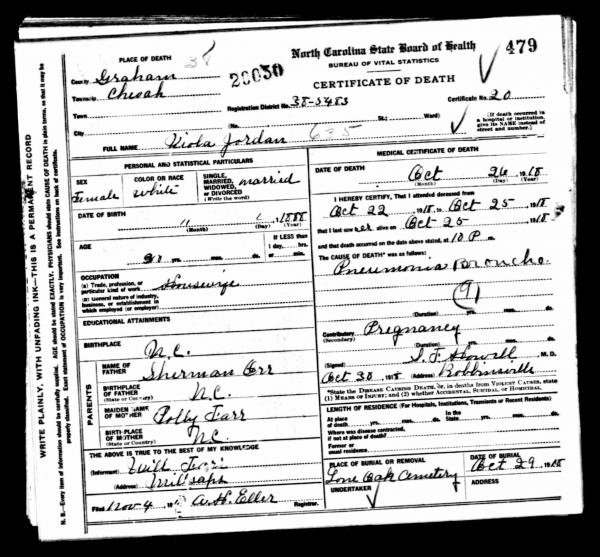 North Carolina State Board of Health
BUREAU OF VITAL STATISTICS
CERTIFICATE OF DEATH
479
PLACE OF DEATH 38
County Graham
Township Cheoah
20050
Registration District No. 38-5483
Certificate No. 20
Town
City
(No. St.; Ward)
[If death occurred in
a hospital or institution,
give its NAME instead of
street and number.]
FULL NAME Viola Jordan 635
PERSONAL AND STATISTICAL PARTICULARS
SEX
Female
COLOR OR RACE
White
SINGLE,
MARRIED,
WIDOWED,
OR DIVORCED
(Write the word)
married
DATE OF BIRTH
11 1888
(Month) (Day) (Year)
AGE
30 yrs. mos. ds.
If LESS than
1 day, hrs.
or min.
OCCUPATION
(a) Trade, profession, or
particular kind of work Housewife
(b) General nature of industry,
business, or establishment in
which employed (or employer)
EDUCATIONAL ATTAINMENTS
BIRTHPLACE N.C.
PARENTS
NAME OF
FATHER Sherman Orr
BIRTHPLACE
OF FATHER
(State or Country) N.C.
MAIDEN NAME
OF MOTHER Polly Farr
BIRTHPLACE
OF MOTHER
(State or Country) N.C.
THE ABOVE IS TRUE TO THE BEST OF MY KNOWLEDGE
(Informant) Will
(Address) Millsaps
Filed Nov 4 19 A. H. Eller
Registrar.
MEDICAL CERTIFICATE OF DEATH
DATE OF DEATH
Oct 26 1918
(Month) (Day) (Year)
I HEREBY CERTIFY, That I attended deceased from
Oct 22 1918 to Oct 25 1918
that I last saw her alive on Oct 25 1918
and that death occurred on the date above stated, at 10 P m.
The CAUSE OF DEATH* was as follows:
Pneumonia Broncho.
(91)
(Duration) yrs. mos. ds.
Contributory Pregnancy
(Secondary)
(Duration) yrs. mos. ds.
(Signed) Howell M. D.
Oct 30 1918 (Address) Robbinsville
*State the DISEASE CAUSING DEATH, or, in deaths from VIOLENT CAUSES, state
(1) MEANS OF INJURY; and (2) whether ACCIDENTAL, SUICIDAL, or HOMICIDAL.
LENGTH OF RESIDENCE (For Hospitals, Institutions, Transients or Recent Residents)
At place
of death yrs. mos. ds.
In the
State yrs. mos. ds.
Where was disease contracted,
if not at place of death?
Former or
usual residence
PLACE OF BURIAL OR REMOVAL
Lone Oak Cemetery
DATE OF BURIAL
Oct 29 1918
UNDERTAKER
ADDRESS
WRITE PLAINLY, WITH UNFADING INK—THIS IS A PERMANENT RECORD
N. B.—Every item of information should be carefully supplied. AGE should be stated EXACTLY. PHYSICIANS should state CAUSE OF DEATH in plain terms, so that it may be
properly classified. Exact statement of OCCUPATION is very important. See instructions on back of certificate.